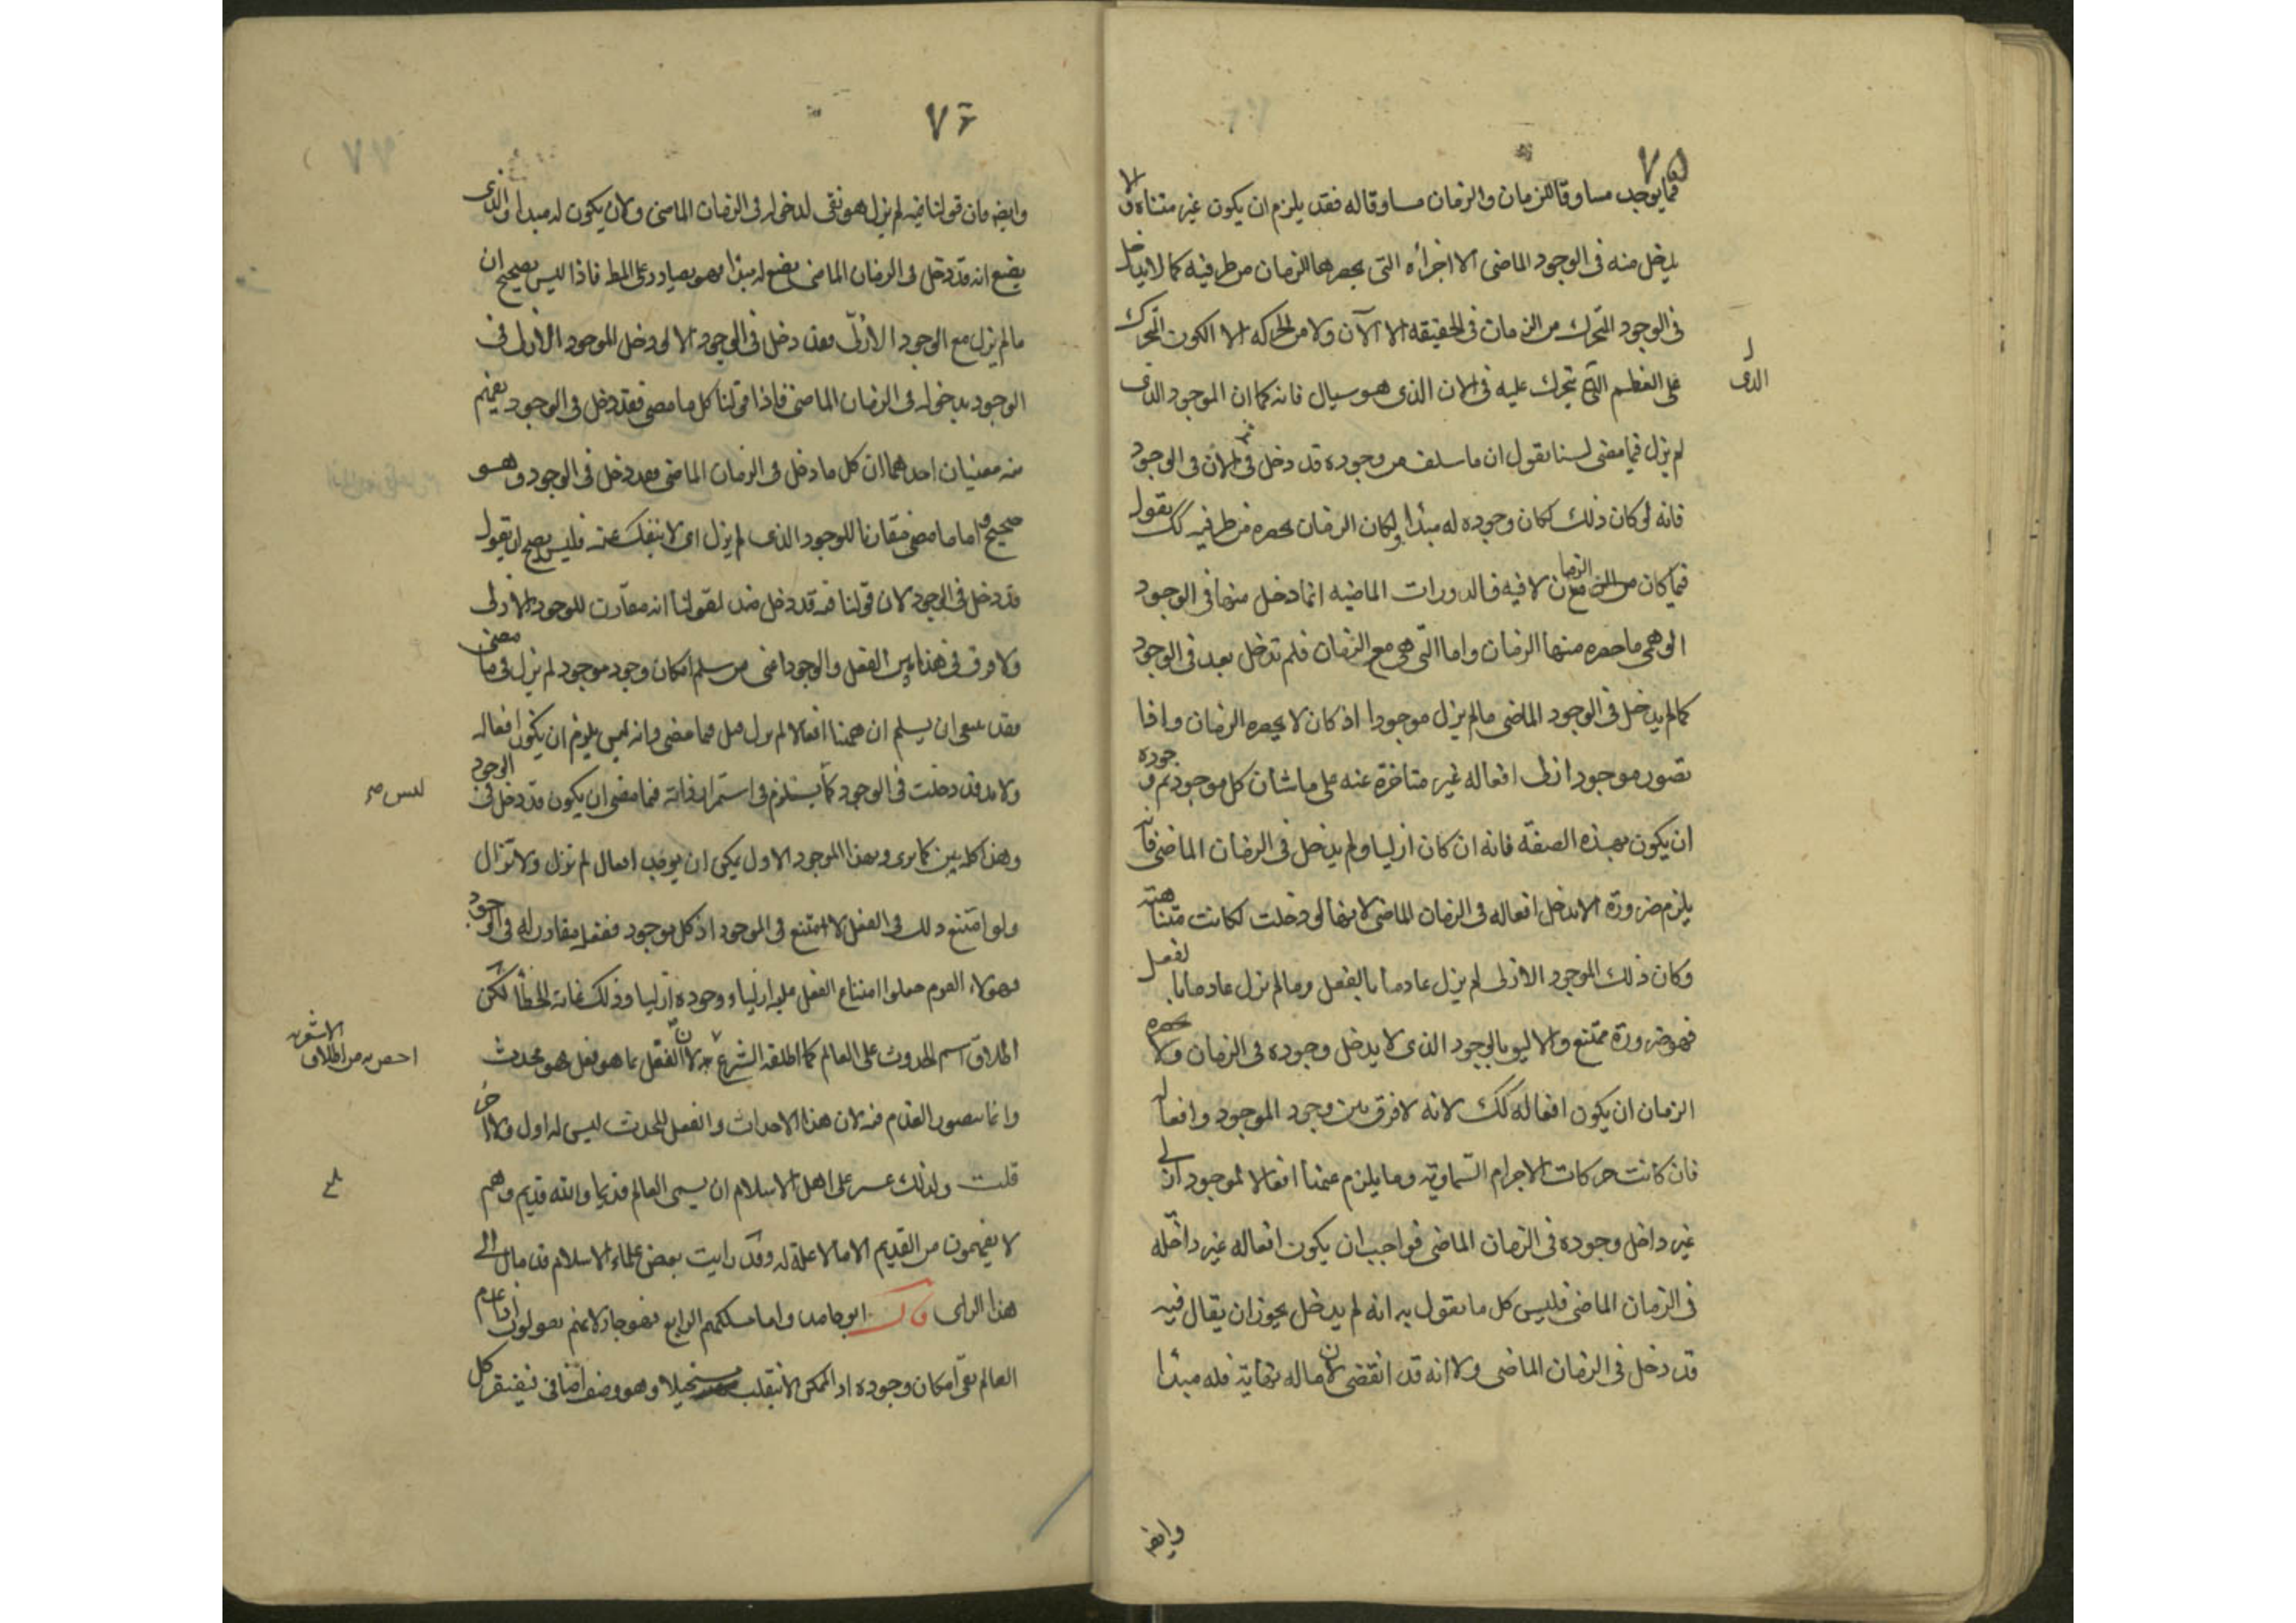 ٧٥
فما يوجد مساوقا للزمان والزمان مساوقا له فقد يلزم ان يكون غير متناه والا
يدخل منه فى الوجود الماضى الا اجزاؤه التى يحصرها الزمان من طرفيه كما لا يدخل
فى الوجود المتحرك من الزمان فى الحقيقه الا الآن ولا من الحركه الا الكون المتحرك
على العظم التى يتحرك عليه فى الان الذى هو سيال فانه كما ان الموجود الذى
الذى
لم يزل فيما مضى لسنا نقول ان ما سلف من وجوده قد دخل فى الان فى الوجود
فانه لو كان ذلك لكان وجوده له مبدأ ولكان الزمان يحصره من طرفيه كك نقول
فيما كان مع الزمان لا فيه فالدورات الماضيه انما دخل منها فى الوجود
الوهمى ما حصره منها الزمان واما التى هى مع الزمان فلم تدخل بعد فى الوجود
كما لم يدخل فى الوجود الماضى ما لم يزل موجودا اذ كان لا يحصره الزمان واذا
تصور موجود ازلى افعاله غير متاخرة عنه على ما شان كل موجود تم وجوده
ان يكون بهذه الصفة فانه ان كان ازليا ولم يدخل فى الزمان الماضى فانه
يلزم ضرورة الا يدخل افعاله فى الزمان الماضى لانها لو دخلت لكانت متناهية
وكان ذلك الموجود الازلى لم يزل عادما بالفعل وما لم يزل عادما بالفعل
فهو ضرورة ممتنع والاليق بالوجود الذى لا يدخل وجوده فى الزمان ولا يحصره
الزمان ان يكون افعاله كك لانه لا فرق بين وجود الموجود وافعاله
فان كانت حركات الاجرام السماوية وما يلزم عنها افعالا لموجود ازلى
غير داخل وجوده فى الزمان الماضى فواجب ان يكون افعاله غير داخلة
فى الزمان الماضى فليس كل ما نقول به انه لم يدخل يجوز ان يقال فيه
قد دخل فى الزمان الماضى ولا انه قد انقضى لان ما له نهاية فله مبدأ
وايضا
٧٦
وايضا فان قولنا فيه لم يزل هو نفى لدخوله فى الزمان الماضى ولان يكون له مبدا والذى
يضع انه قد دخل فى الزمان الماضى يضع له مبدا فهو يصادر على المط فاذا ليس بصحيح ان
ما لم يزل مع الوجود الازلى فقد دخل فى الوجود الا لو دخل الموجود الازلى فى
الوجود بدخوله فى الزمان الماضى فاذا قولنا كل ما مضى فقد دخل فى الوجود يفهم
منه معنيان احدهما ان كل ما دخل فى الزمان الماضى فقد دخل فى الوجود وهو
صحيح واما ما مضى مقارنا للوجود الذى لم يزل اى لا ينفك عنه فليس يصح ان نقول
قد دخل فى الوجود لان قولنا فيه قد دخل ضد لقولنا انه مقارن للوجود الازلى
ولا فرق فى هذا بين الفعل والوجود اعنى من سلم امكان وجود موجود لم يزل فيما مضى
فقد ينبغى ان يسلم ان ههنا افعالا لم يزل قبل فيما مضى وانه ليس يلزم ان يكون افعاله
ولا بد قد دخلت فى الوجود كما ليس يلزم فى استمرار ذاته فيما مضى ان يكون قد دخل فى الوجود
ليس صح
وهذا كله بين كما يرى وبهذا الموجود الاول يمكن ان يوجد افعال لم تزل ولا تزال
ولو امتنع ذلك فى الفعل لامتنع فى الموجود اذ كل موجود ففعله مقارن له فى الوجود
فهولاء القوم جعلوا امتناع الفعل عليه ازليا ووجوده ازليا وذلك غاية الخطا لكن
اطلاق اسم الحدوث على العالم كما اطلقه الشرع لان الفعل بما هو فعل هو محدث
اخص به من اطلاق الاشعريه
وانما يتصور القدم فيه لان هذا الاحداث والفعل المحدث ليس له اول ولا اخر
قلت ولذلك عسر على اهل الاسلام ان يسمى العالم قديما والله قديم وهم
لا يفهمون من القديم الا ما لا علة له وقد رايت بعض علماء الاسلام قد مال الى
هذا الراى قال ابو حامد واما مسلكهم الرابع فهو جار لانهم يقولون اذا عدم
العالم بقى امكان وجوده اذ الممكن لا ينقلب مستحيلا وهو وصف اضافى فيفتقر كل